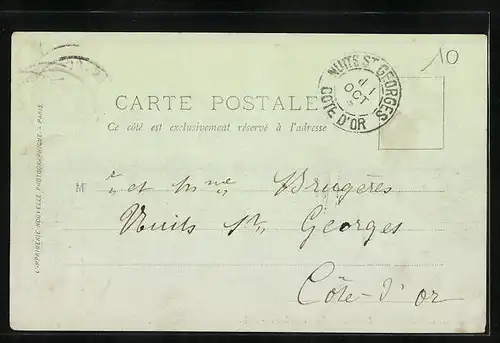 10
NUITS-ST-GEORGES
1
OCT
COTE D'OR
CARTE POSTALE
Ce côté est exclusivement réservé à l'adresse
L'IMPRIMERIE NOUVELLE PHOTOGRAPHIQUE - PARIS
M r et Mme Brugères
Nuits St Georges
Côte-d'or